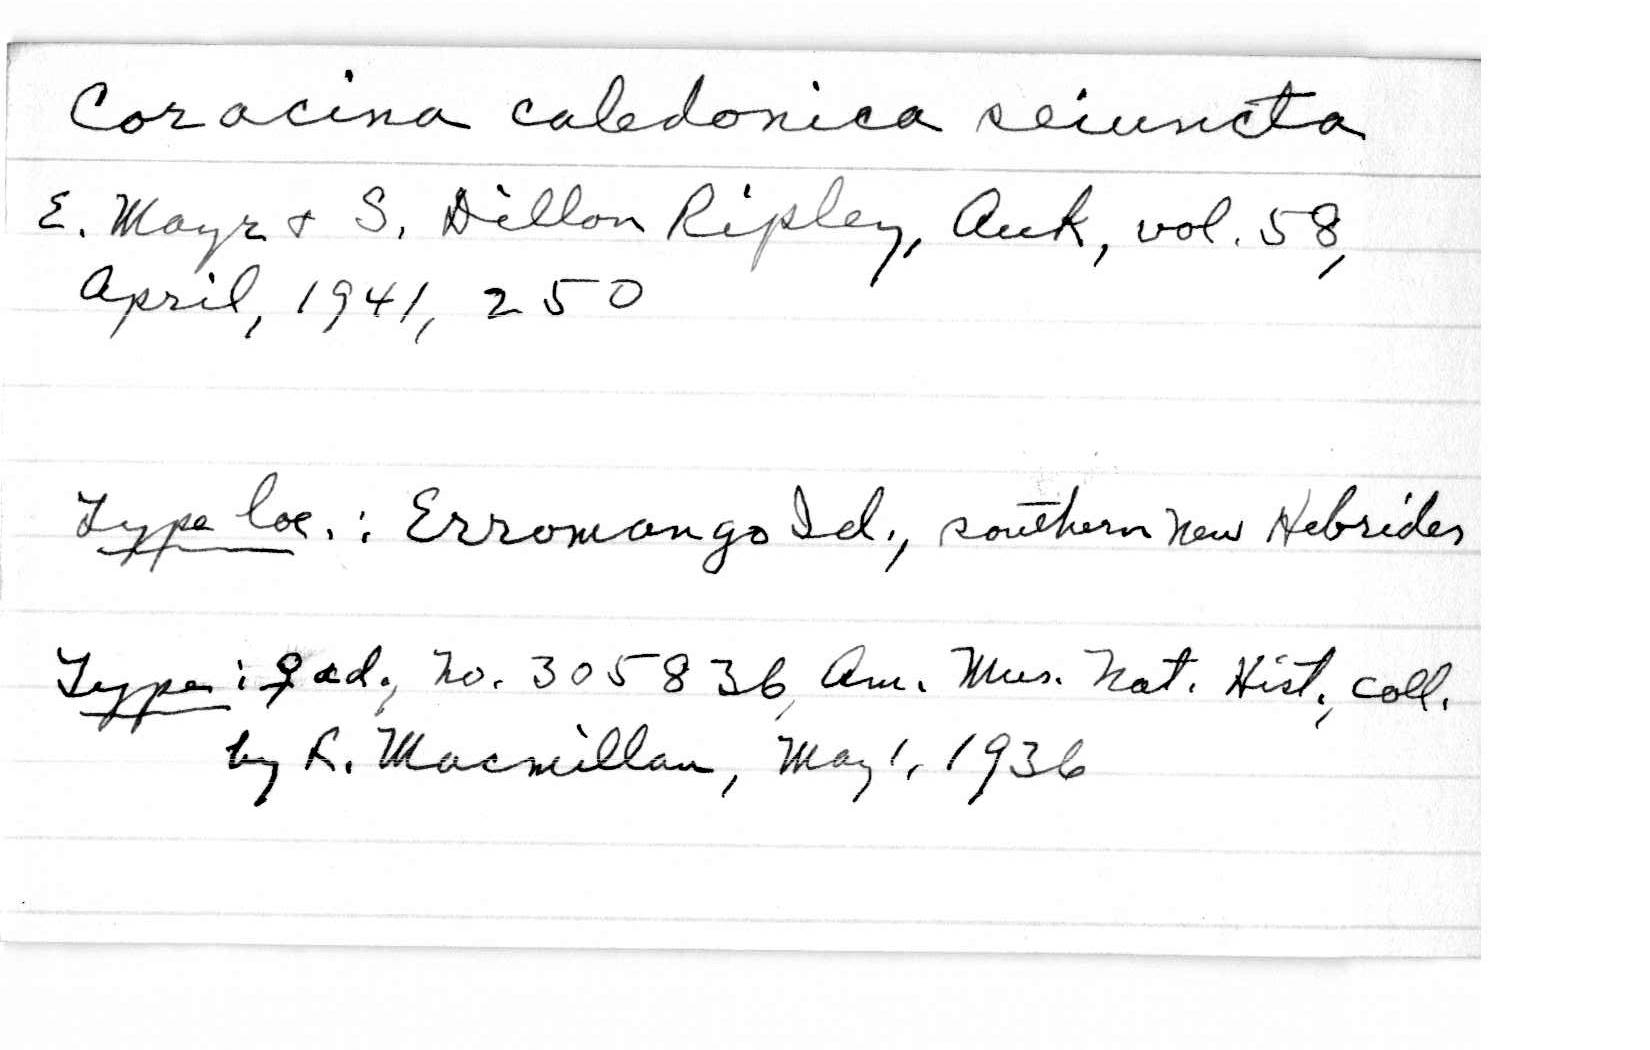 Coracina caledonica seiuncta
E. Mayr & S. Dillon Ripley, Auk, vol. 58,
April, 1941, 250
Type loc. : Erromango Id., southern New Hebrides
Type : ♀ ad., No. 305836, Am. Mus. Nat. Hist., coll.
by R. Macmillan, May 1, 1936